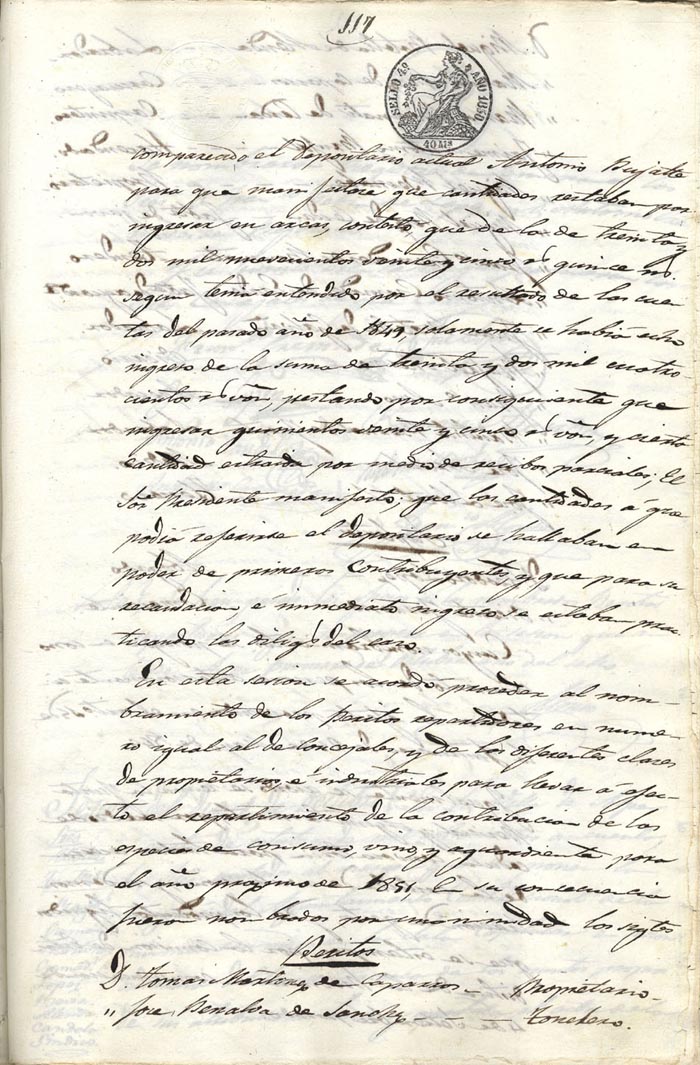 117
SELLO 4º AÑO 1850
40 Ms
comparecido el depositario actual Antonio
para que manifestara que cantidades restaban por
ingresar en arcas, contestó que de la de treinta y
dos mil nuevecientos veinte y cinco rs quince ms
segun tenia entendido por el resultado de las cuen
tas del pasado año de 1849, solamente se habia echo
ingreso de la suma de treinta y dos mil cuatro
cientos rs von, restando por consiguiente que
ingresar quinientos veinte y cinco rs von, y cierta
cantidad estraida por medio de recibos parciales; El
Sor Presidente manifestó; que las cantidades á que
podia referirse el depositario se hallaban en
poder de primeros Contribuyentes, y que para su
recaudacion, é inmediato ingreso se estaban prac
ticando las diligs del caso.
En esta sesion se acordó proceder al nom-
bramiento de los Peritos repartidores en nume
ro igual al de Concejales, y de las diferentes clases
de propietarios, é industriales para llevar á efec-
to el repartimiento de la contribucion de las
especies de consumo, vino, y aguardiente para
el año proximo de 1851, En su consecuencia
fueron nombrados por unanimidad los sigtes
Peritos
D. Tomas Martinez de Caparros - Propietario -
" Jose Peralta de Sanchez - - - Tonelero.